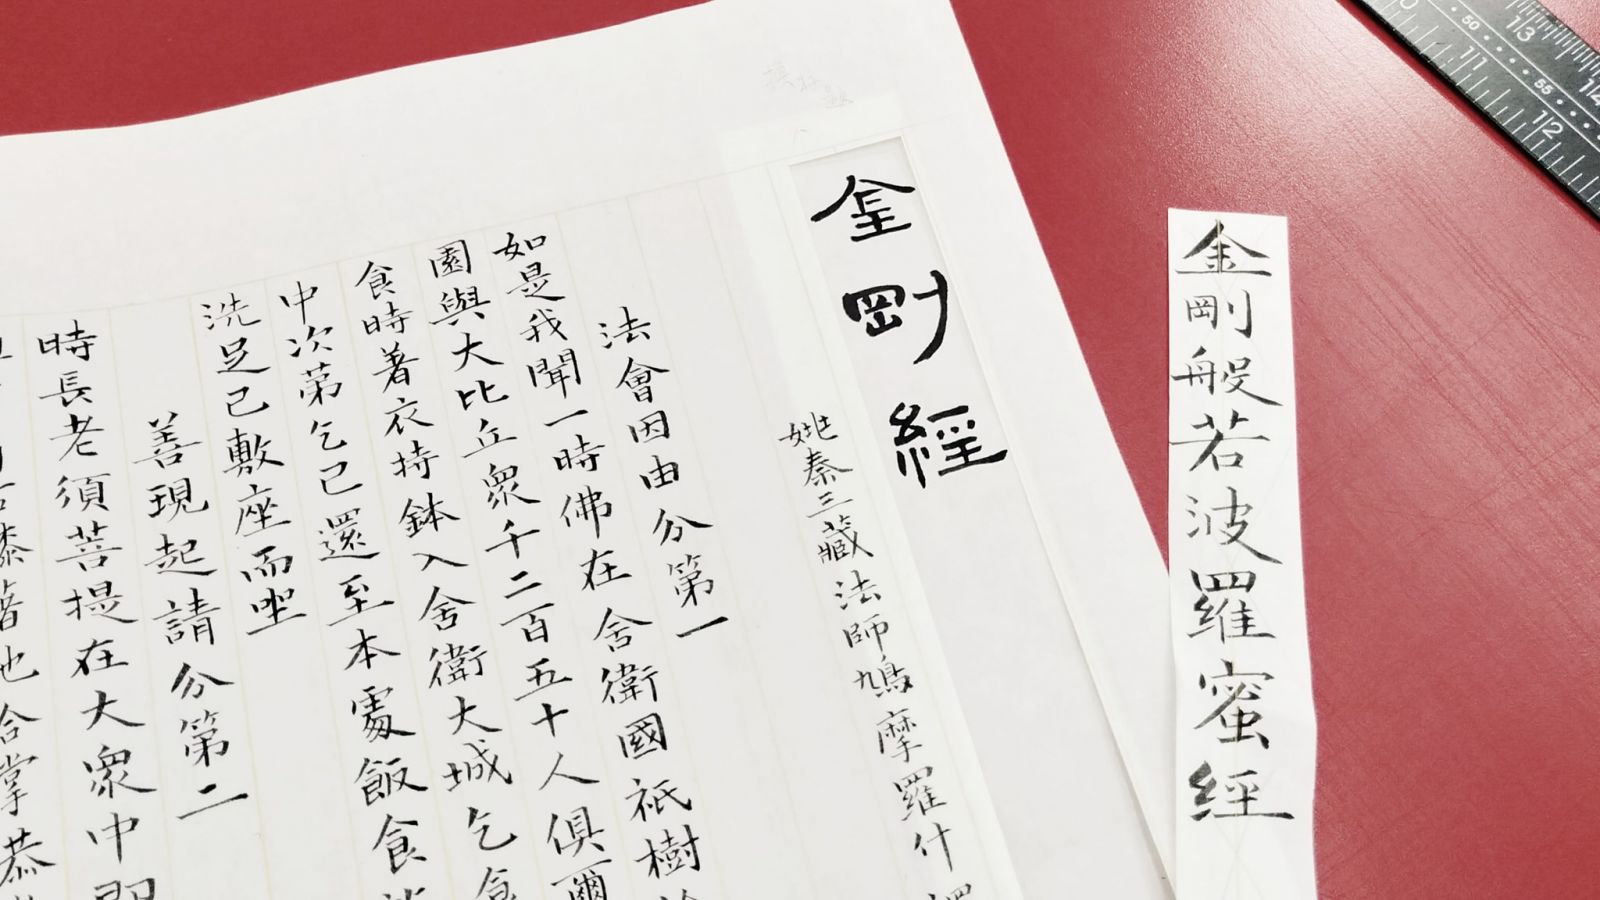 金剛般若波羅蜜經
金剛經
姚秦三藏法師鳩摩羅什
法會因由分第一
如是我聞一時佛在舍衛國祇樹
園與大比丘眾千二百五十人俱爾
食時著衣持鉢入舍衛大城乞食
中次第乞已還至本處飯食
洗足已敷座而坐
善現起請分第二
時長老須菩提在大眾中即
膝著地合掌恭
50 55
11 12
13 14